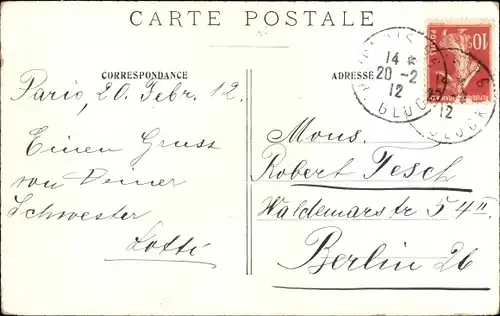 CARTE POSTALE
CORRESPONDANCE
ADRESSE
Paris, 20. Febr. 12.
Einen Gruss
von Deiner
Schwester
Lotti
Mons.
Robert Tesch
Waldemarstr 54 II
Berlin 26
14 *
20 - 2
12
GLUCK
10
POSTES
12